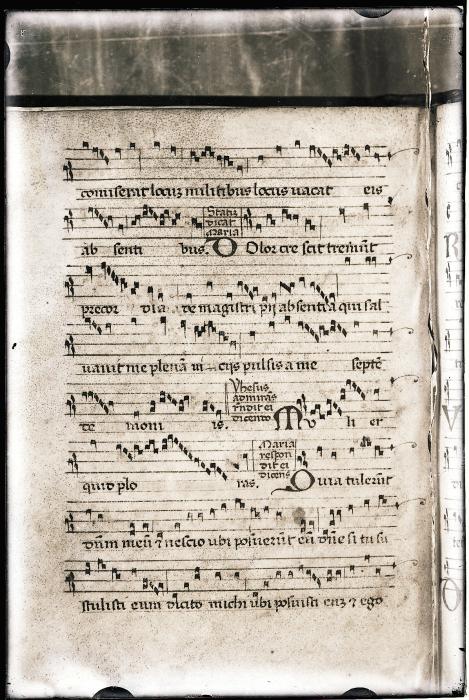 comiserat locuz militibus locus uacat eis
ab senti bus. Statī dicat maria Dolor cre scit tremūt
precor dia de magistri pii absentia qui sal
uauit me plenā ui cijs pulsis a me septē
de moni is. Yhesus admirās rñdit ei dicendo Mu li er
quid plo ras. Maria respondit ei dicens Quia tulerūt
dñm meū ⁊ nescio ubi posuerūt eū dñe si tu su
stulisti eum dicito michi ubi posuisti euʒ ⁊ ego